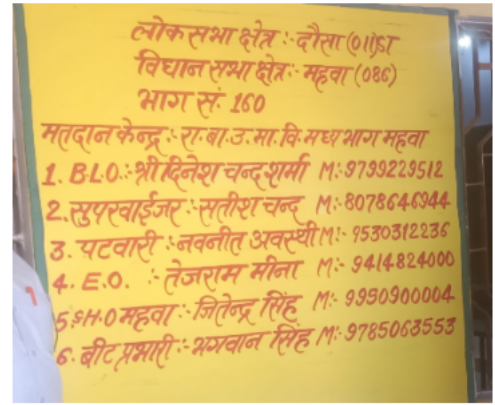 लोकसभा क्षेत्र :- दौसा (011)ST
विधान सभा क्षेत्र:- महवा (086)
भाग सं. 160
मतदान केन्द्र :- रा.बा.उ.मा.वि.मध्य भाग महवा
1. B.L.O.:- श्री दिनेश चन्द शर्मा M:- 9799229512
2. सुपरवाईजर :- सतीश चन्द M:- 8078646944
3. पटवारी :- नवनीत अवस्थी M:- 9530312236
4. E.O. :- तेजराम मीना M:- 9414824000
5. S.H.O महवा :- जितेन्द्र सिंह M:- 9990900004
6. बीट प्रभारी :- भगवान सिंह M:- 9785063553